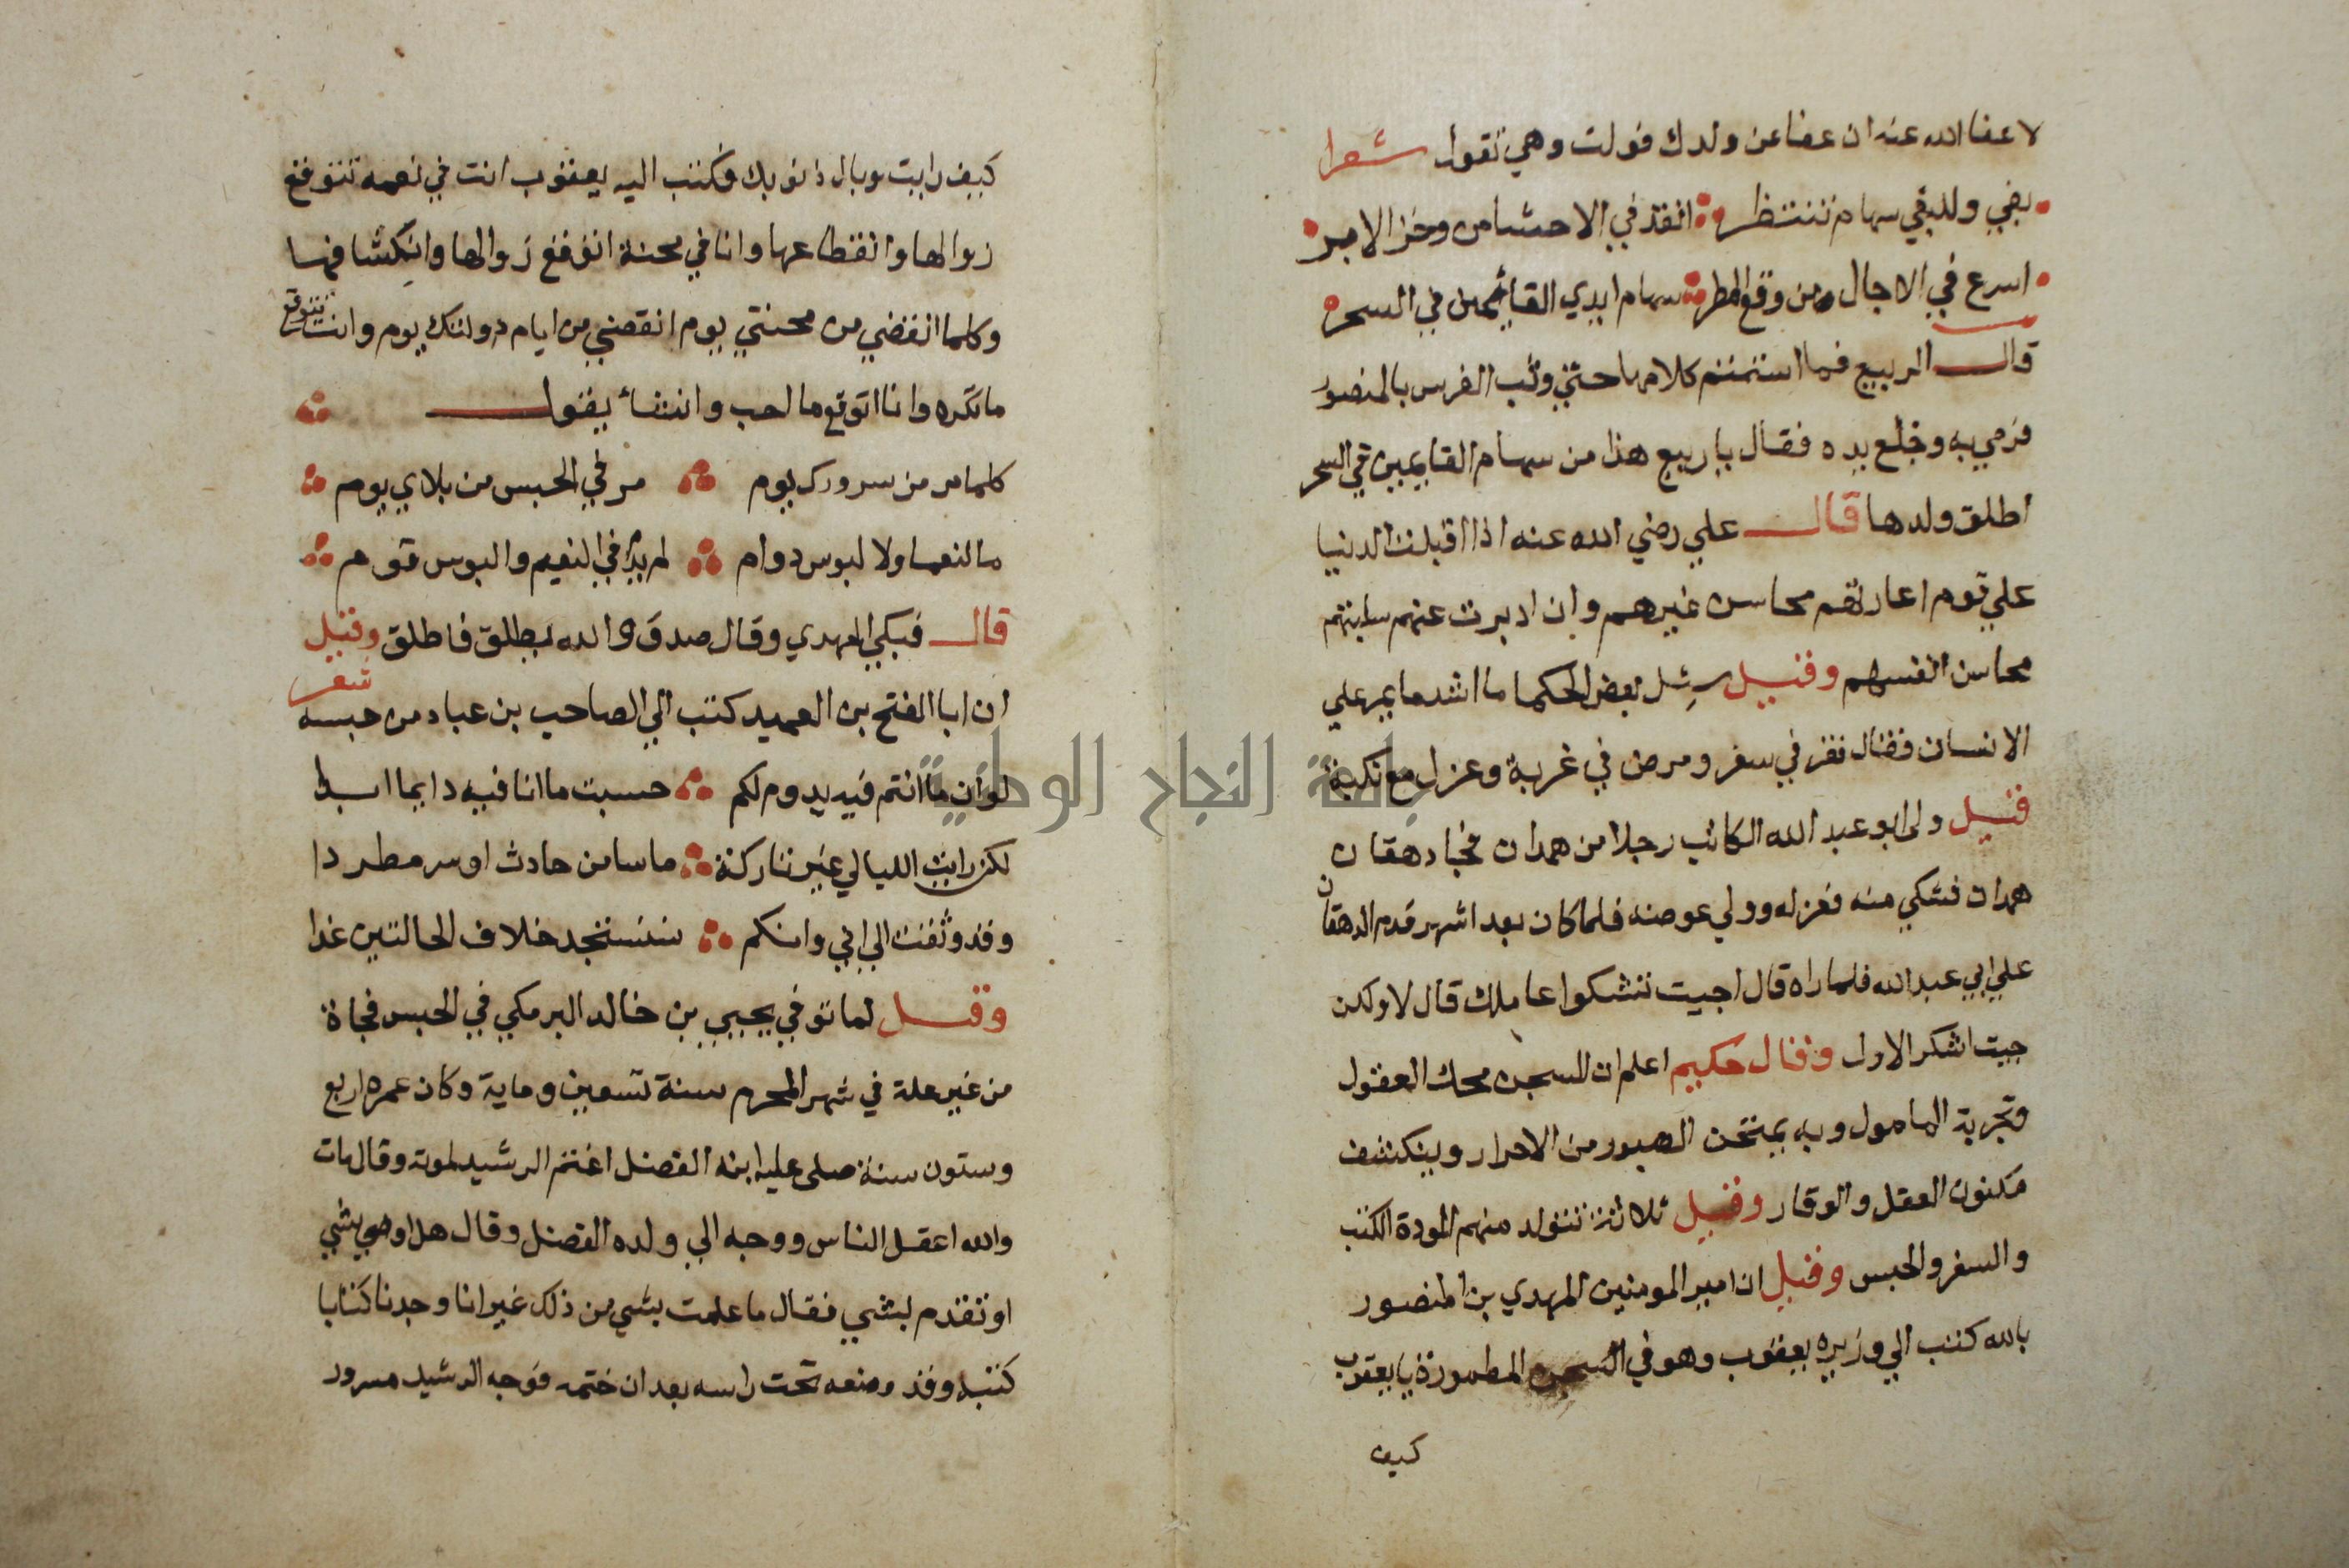 لا عفا الله عنه ان عفا عن ولدك فولت وهي تقول شعرا
بغي وللبغي سهام تنتظر انفذ في الاحشا من وخز الابر
اسرع في الاجال من وقع المطر سهام ايدي القايمين في السحر
قال الربيع فما استتمت كلامها حتي وثب الفرس بالمنصور
فرمي به وخلع يده فقال يا ربيع هذا من سهام القايمين في السحر
اطلق ولدها قال علي رضي الله عنه اذا اقبلت الدنيا
علي قوم اعارتهم محاسن غيرهم وان ادبرت عنهم سلبتهم
محاسن انفسهم وقيل سئل بعض الحكما ما اشد ما يمر علي
الانسان فقال فقر في سفر ومرض في غربة وعزل مع نكبة
قيل ولي ابو عبد الله الكاتب رجلا من همدان فجا دهقان
همدان فشكي منه فعزله وولي عوضه فلما كان بعد اشهر قدم الدهقان
علي ابي عبد الله فلما راه قال اجيت تشكوا عاملك قال لا ولكن
جيت اشكر الاول وقال حكيم اعلم ان السجن محك العقول
وتجربة المامول وبه يمتحن الصبور من الاحرار وينكشف
مكنون العقل والوقار وقيل ثلاثة تتولد منهم المودة الكتب
والسفر والحبس وقيل ان امير المومنين المهدي بن المنصور
بالله كتب الي وزيره يعقوب وهو في السجن المطمورة يا يعقوب
كيف
كيف رايت وبال ذنوبك فكتب اليه يعقوب انت في نعمه تتوقع
زوالها وانقطاعها وانا في محنة اتوقع زوالها وانكشافها
وكلما انقضي من محنتي يوم انقضي من ايام دولتك يوم وانت تتوقع
ما تكره وانا اتوقع ما احب وانشا يقول
كلما مر من سرورك يوم مر في الحبس من بلاي يوم
ما لنعما ولا لبوس دوام لم يدم في النعيم والبوس قوم
قال فبكي المهدي وقال صدق والله يطلق فاطلق وقيل
ان ابا الفتح بن العميد كتب الي الصاحب بن عباد من حبسه شعر
لو ان ما انتم فيه يدوم لكم حسبت ما انا فيه دايما ابدا
لكن رايت الليالي غير تاركة ما سا من حادث او سر مطردا
وقد وثقت الي اني وانكم سنستجد خلاف الحالتين غدا
وقيل لما توفي يحيي بن خالد البرمكي في الحبس فجاة
من غير علة في شهر المحرم سنة تسعين وماية وكان عمره اربع
وستون سنة صلى عليه ابنه الفضل اغتم الرشيد لموته وقال مات
والله اعقل الناس ووجه الي ولده الفضل وقال هل اوصي بشي
او تقدم بشي فقال ما علمت بشي من ذلك غير انا وجدنا كتابا
كتبه وقد وضعه تحت راسه بعد ان ختمه فوجه الرشيد مسرور
جامعة النجاح الوطنية